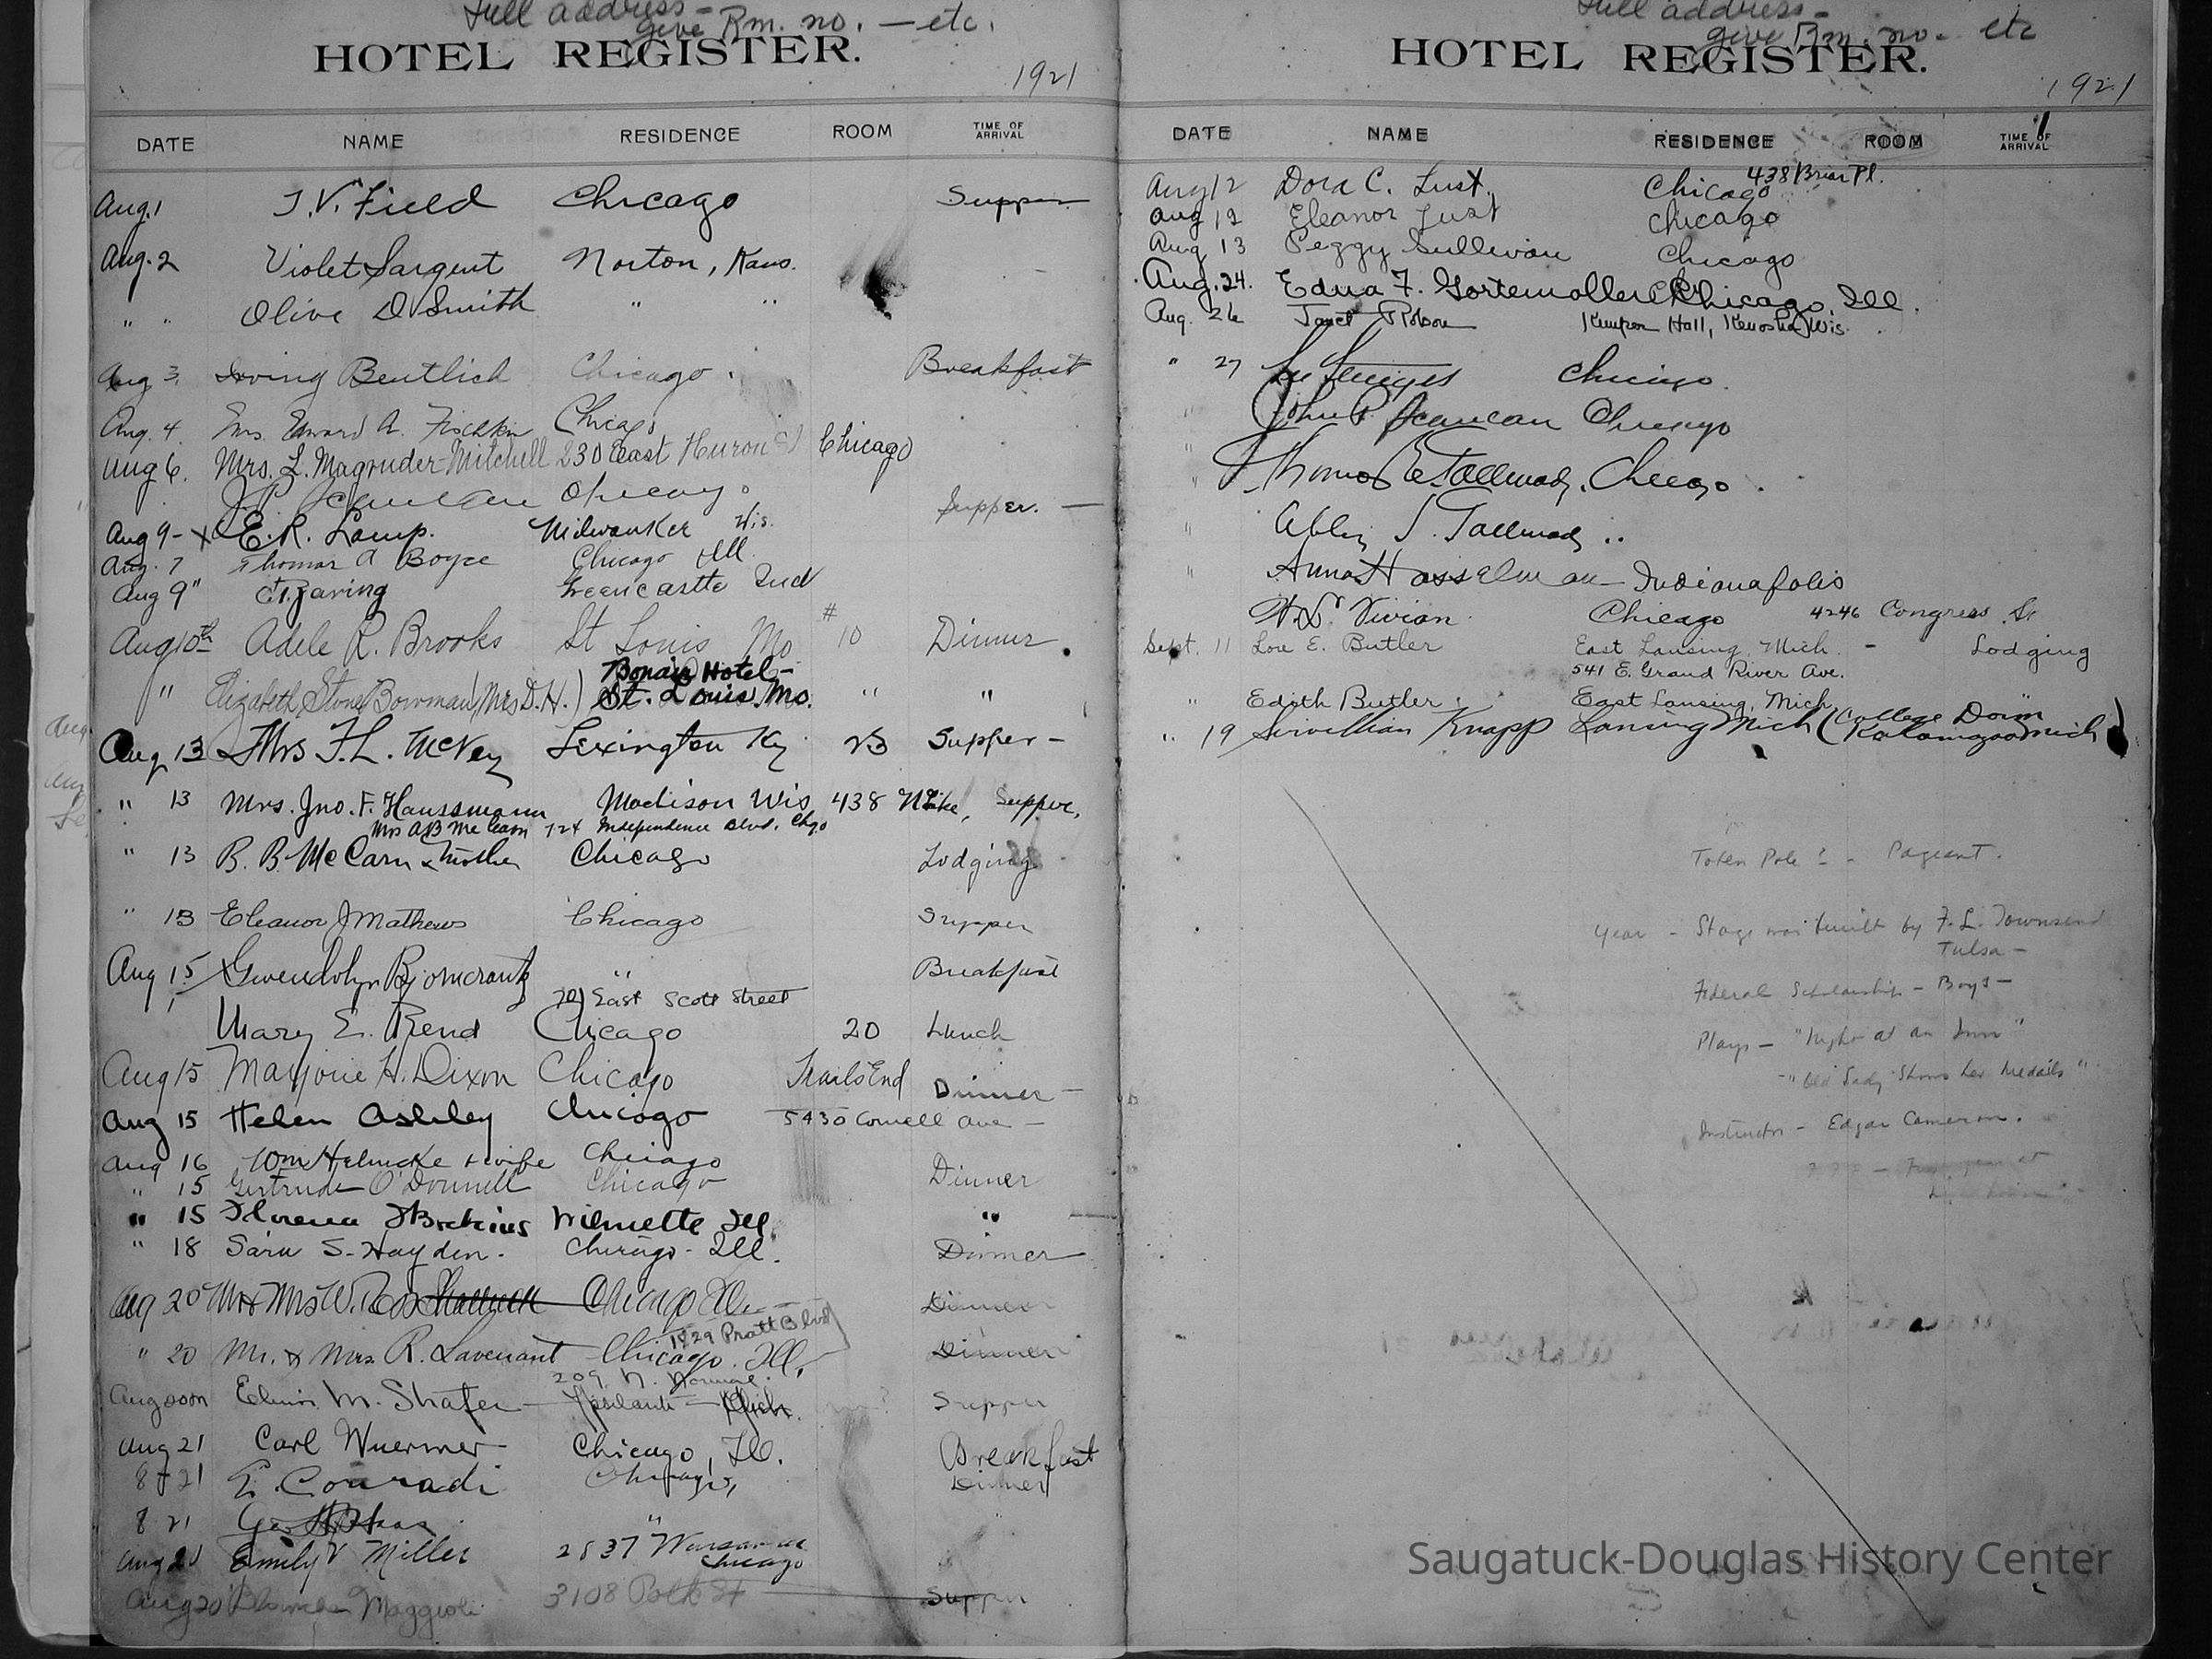 Full address - give Rm. no. — etc.
HOTEL REGISTER.
1921
DATE NAME RESIDENCE ROOM TIME OF ARRIVAL
Aug. 1 J. V. Field Chicago Supper
Aug. 2 Violet Sargent Norton, Kans.
" " Olive D Smith " "
Aug 3. Irving Beutlich Chicago. Breakfast
Aug. 4. Mrs. Edward A. Chicago
Aug 6. Mrs. L. Magruder-Mitchell 230 East Huron St Chicago
J. P. Chicago Supper. —
Aug 9- X E. R. Lamp. Milwaukee Wis.
Aug. 7 Thomas A Boyce Chicago Ill
Aug 9" Greencastle Ind
Aug 10th Adele R. Brooks St Louis Mo #10 Dinner.
Bonair Hotel-
" Elizabeth Stone Bowman (Mrs D. H.) St. Louis, Mo. " "
Aug 13 Mrs F. L. McVey Lexington Ky 23 Supper -
" 13 Mrs. Jno. F. Haussmann Madison Wis 438 N Lake, Supper,
Mrs AB McCarn 724 Independence Blvd. Chgo
" 13 B. B. McCarn & Mother Chicago Lodging
" 13 Eleanor J Mathews Chicago Supper
Aug 15 Gwendolyn Bjorncrantz " Breakfast
701 East Scott Street
Mary E. Rend Chicago 20 Lunch
Aug 15 Marjorie H. Dixon Chicago Trails End Dinner —
Aug 15 Helen Ashley Chicago 5430 Cornell Ave —
Aug 16 Wm Helmcke & wife Chicago Dinner
" 15 Gertrude O'Donnell Chicago
" 15 Wilmette Ill. "
" 18 Sara S. Hayden. Chicago - Ill. Dinner
Aug 20 Mr & Mrs W. Chicago Ill. Dinner
1529 Pratt Blvd
" 20 Mr. & Mrs. R. Lavenant Chicago. Ill. Dinner
209 N. Normal.
Aug M. Shafer Ypsilanti — Mich. Supper
Aug 21 Carl Wuermer Chicago, Ill. Breakfast
8-21 E. Conradi Chicago, Dinner
8 21 "
Aug 20 Emily V Miller Chicago
Aug 20 Maggioli 3108 Polk St Supper
Full address - give Rm. no. - etc
HOTEL REGISTER.
1921
DATE NAME RESIDENCE ROOM TIME OF ARRIVAL
438 Briar Pl.
Aug 12 Dora C. Lust. Chicago
Aug 12 Eleanor Lust Chicago
Aug 13 Peggy Sullivan Chicago
Aug. 24. Edna F. Gortemoller Chicago, Ill.
Aug. 26 Janet Robson Kemper Hall, Kenosha, Wis.
" 27 Chicago.
" John P. Chicago
" Thomas E Tallmadge. Chicago.
" Abby S. Tallmadge "
" Anna Hasselman - Indianapolis
H. S. Vivian. Chicago 4246 Congress St
Sept. 11 Lou E. Butler East Lansing, Mich. - Lodging
541 E. Grand River Ave.
" Edith Butler East Lansing, Mich.
" 19 Knapp Lansing Mich (College Dorm Kalamazoo Mich)
Totem Pole ? - Pageant.
Year - Stage was built by F. L. Townsend
Tulsa -
Federal Scholarship - Boys -
Plays - "Night at an Inn"
- "Old Lady Shows her Medals"
Instructor - Edgar Cameron.
Saugatuck-Douglas History Center